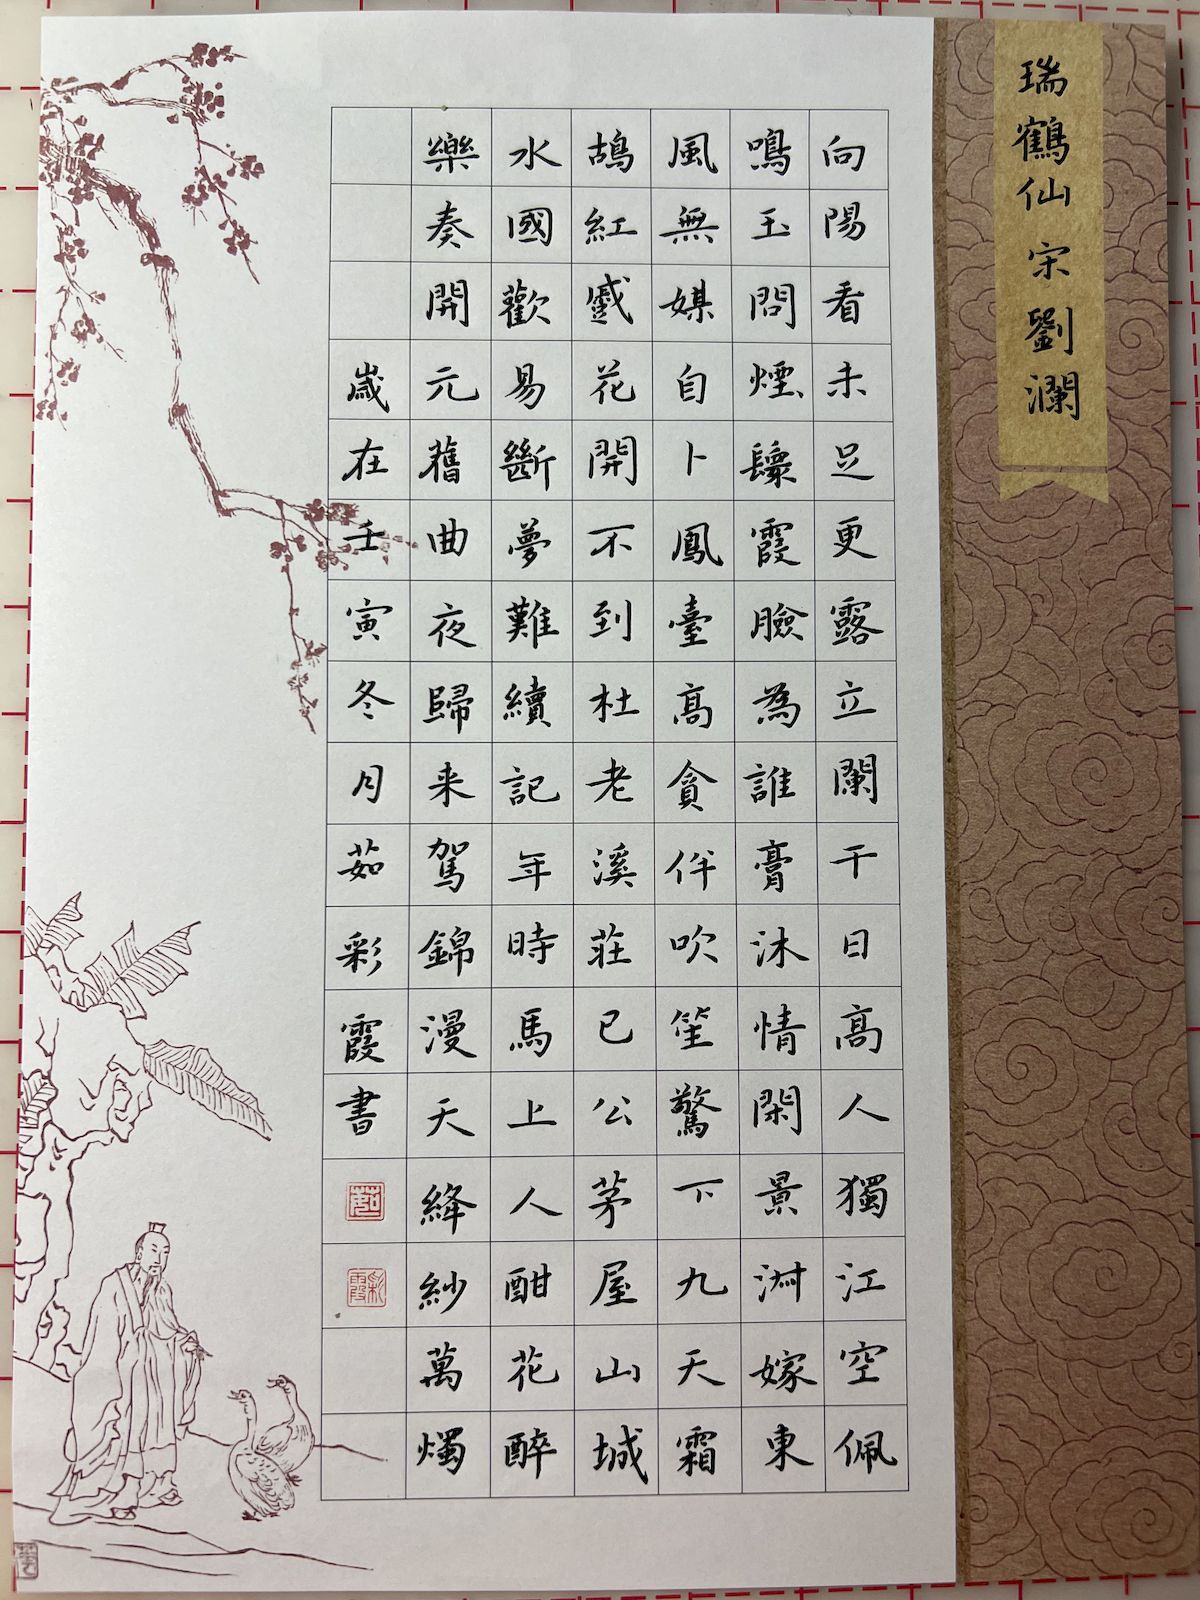 瑞鶴仙 宋 劉瀾
向陽看未足更露立闌干日高人獨江空佩
鳴玉問煙鬟霞臉為誰膏沐情閑景淑嫁東
風無媒自卜鳳臺高貪伴吹笙驚下九天霜
鵠紅蹙花開不到杜老溪莊已公茅屋山城
水國歡易斷夢難續記年時馬上人酣花醉
樂奏開元舊曲夜歸来駕錦漫天絳紗萬燭
歲在壬寅冬月茹彩霞書
茹
彩霞